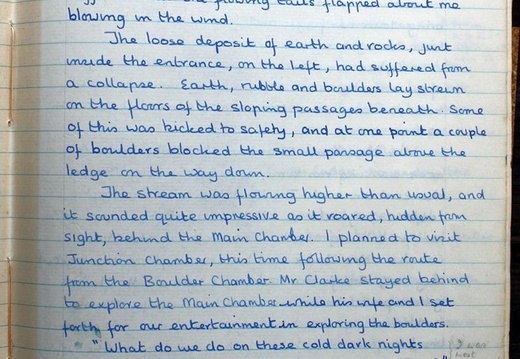 tails flapped about me
blowing in the wind.
The loose deposit of earth and rocks, just
inside the entrance, on the left, had suffered from
a collapse. Earth, rubble and boulders lay strewn
on the floors of the sloping passages beneath. Some
of this was kicked to safety, and at one point a couple
of boulders blocked the small passage above the
ledge on the way down.
The stream was flowing higher than usual, and
it sounded quite impressive as it roared, hidden from
sight, behind the Main Chamber. I planned to visit
Junction Chamber, this time following the route
from the Boulder Chamber. Mr Clarke stayed behind
to explore the Main Chamber while his wife and I set
forth for our entertainment in exploring the boulders.
"What do we do on these cold dark nights